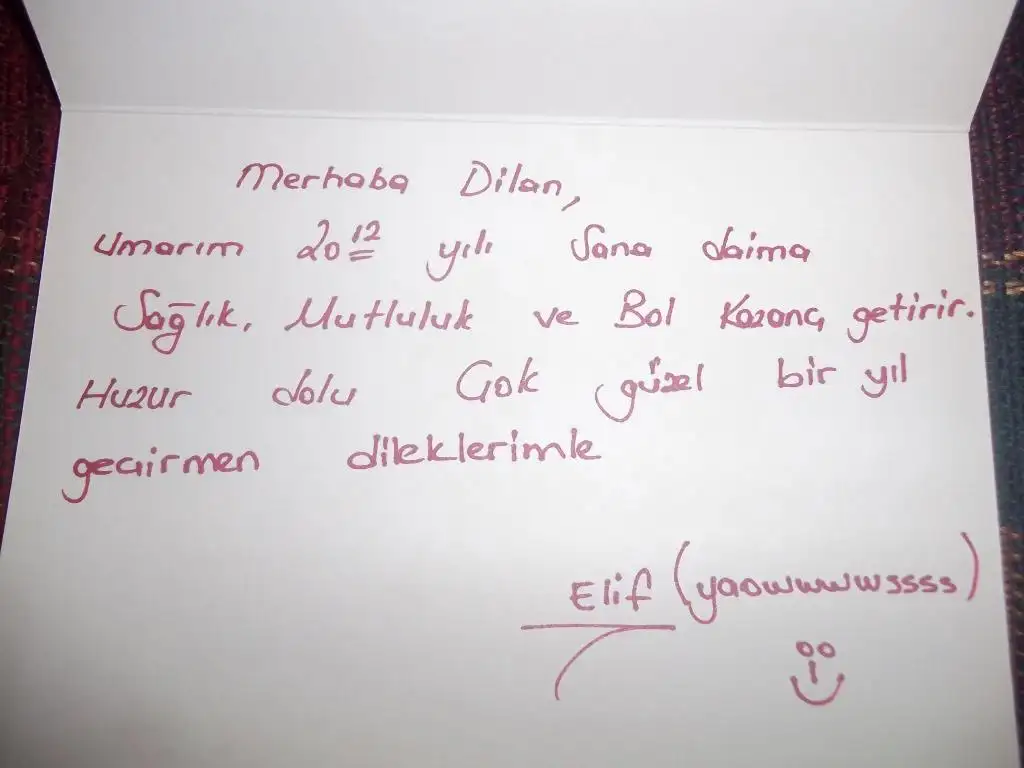 Merhaba Dilan,
Umarım 2012 yılı Sana daima
Sağlık, Mutluluk ve Bol Kazanç getirir.
Huzur dolu Çok güzel bir yıl
geçirmen dileklerimle
Elif (yaowwwwssss)